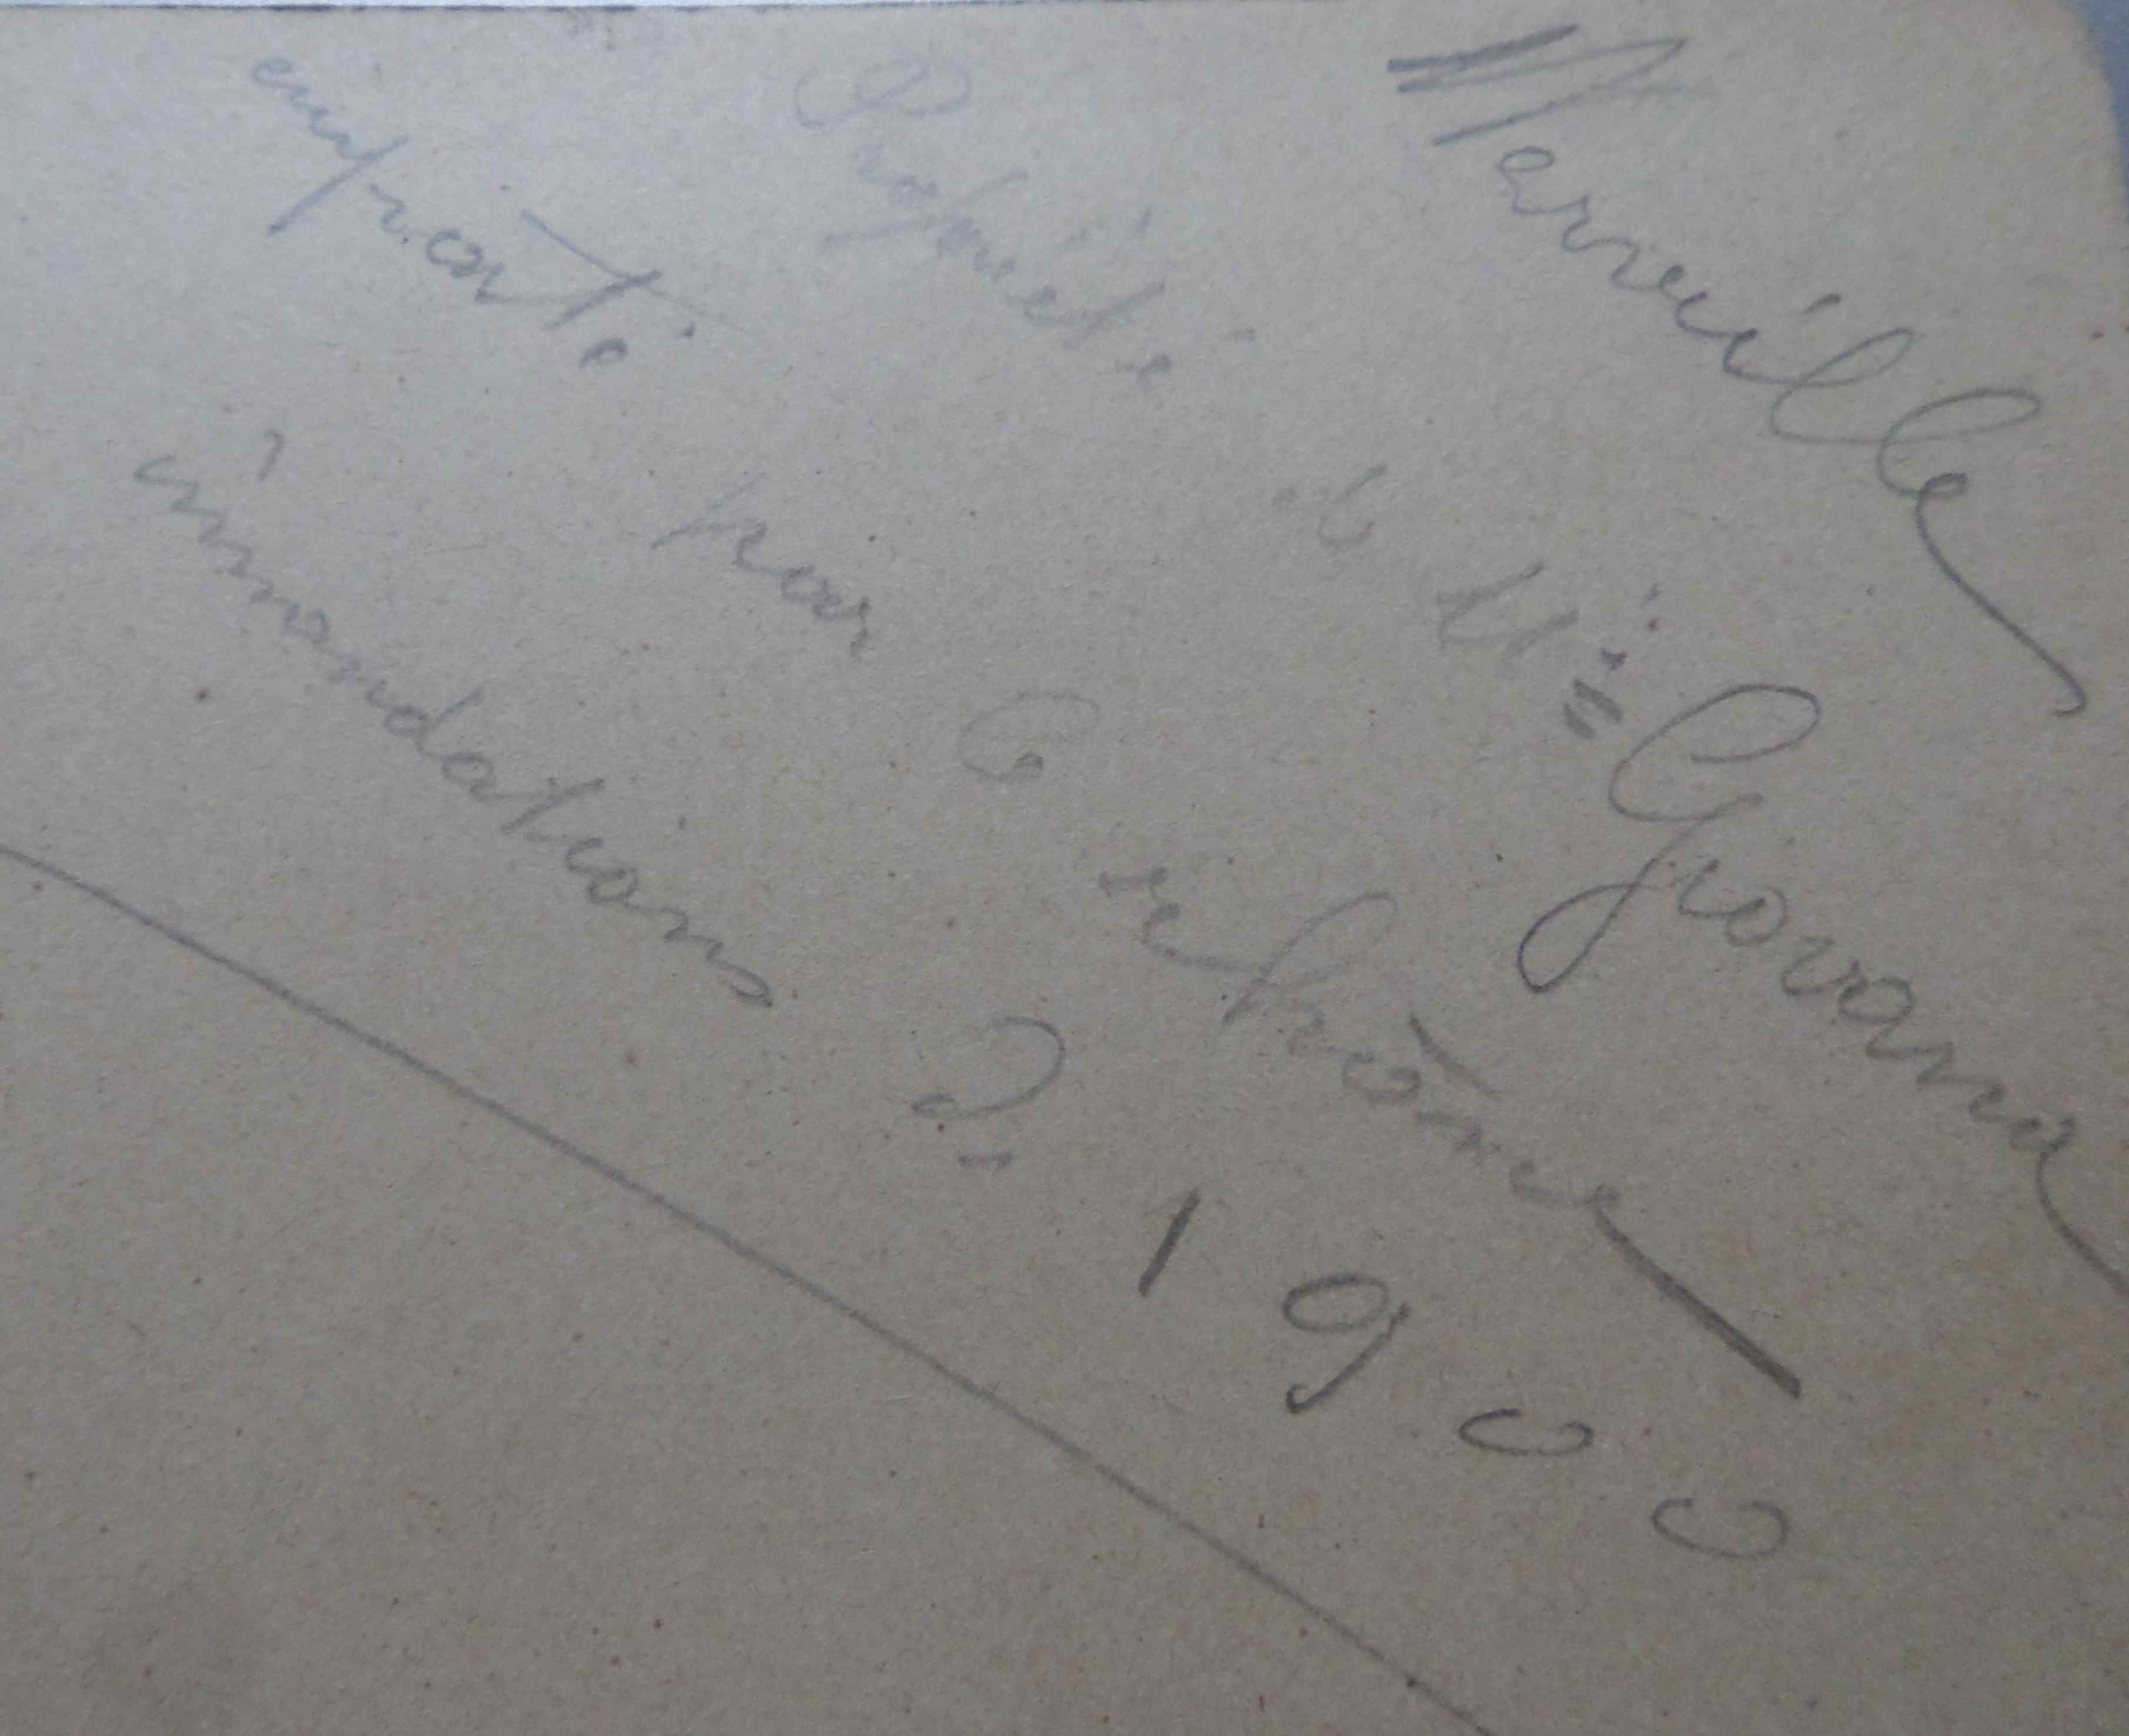 Merveille
Propriété de Mr Giovana
emporté par le rhône
innondations de 1900